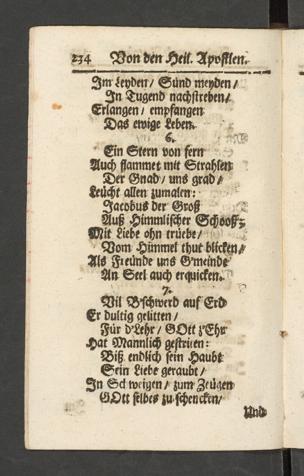 234 Von den Heil. Apostlen.
Im Leyden / Sünd meyden /
In Tugend nachstreben /
Erlangen / empfangen
Das ewige Leben.
6.
Ein Stern von fern
Auch flammet mit Strahlen
Der Gnad / uns grad /
Leücht allen zumalen:
Jacobus der Groß
Auß Himmlischer Schooß /
Mit Liebe ohn trüebe /
Vom Himmel thut blicken /
Als Freünde uns G'meinde
An Seel auch erquicken.
7.
Vil B'schwerd auf Erd
Er dultig gelitten /
Für d'Lehr / GOtt z'Ehr
Hat Mannlich gestriten:
Biß endlich sein Haubt
Sein Liebe geraubt /
In Schweigen / zum Zeügen
GOtt selbes zu schencken /
Und